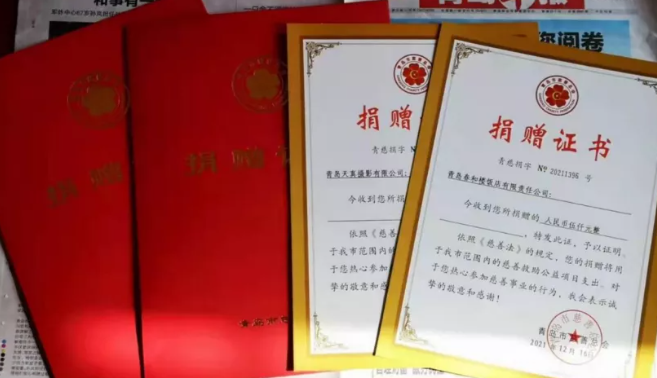 捐赠
捐赠
青慈捐字 N
青岛天真摄影有限公司:
今收到您所捐
依照《慈善
于我市范围内
于您热心参加
挚的敬意和感
捐赠证书
青慈捐字 Nº 20211396 号
青岛春和楼饭店有限责任公司:
今收到您所捐赠的 人民币伍仟元整
,特发此证,予以证明。
依照《慈善法》的规定,您的捐赠将用
于我市范围内的慈善救助公益项目支出。对
于您热心参加慈善事业的行为,我会表示诚
挚的敬意和感谢!
青岛市慈善总会
2021年12月16日
你阅卷